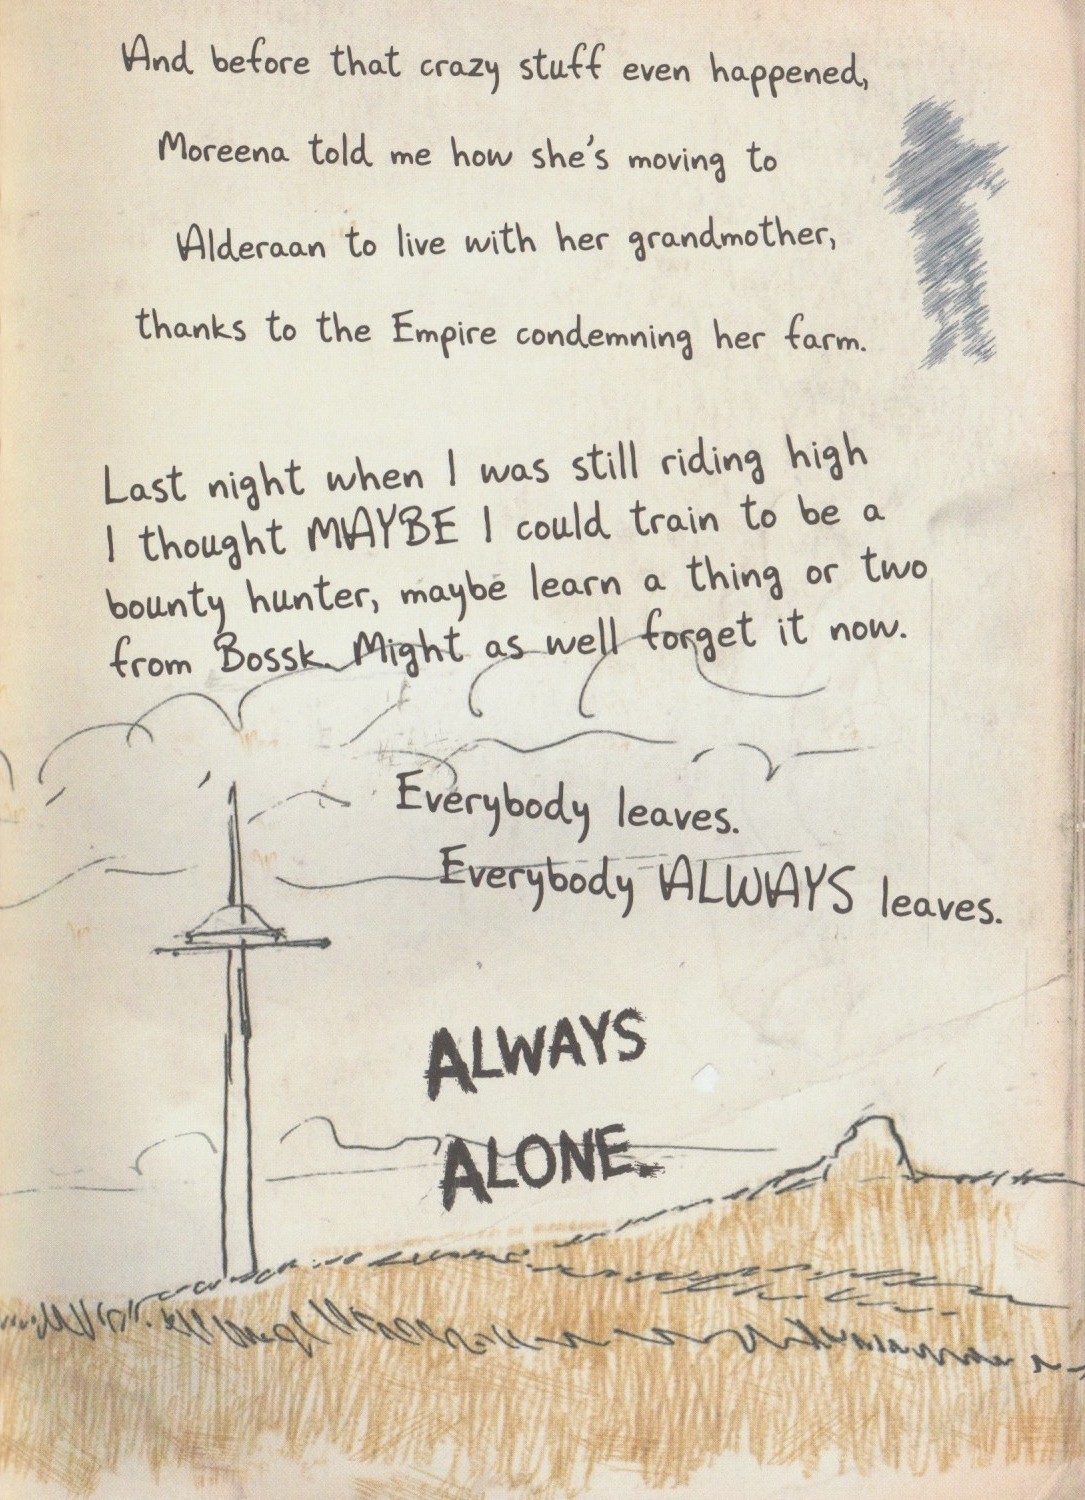 And before that crazy stuff even happened,
Moreena told me how she's moving to
Alderaan to live with her grandmother,
thanks to the Empire condemning her farm.
Last night when I was still riding high
I thought MAYBE I could train to be a
bounty hunter, maybe learn a thing or two
from Bossk. Might as well forget it now.
Everybody leaves.
Everybody ALWAYS leaves.
ALWAYS
ALONE.